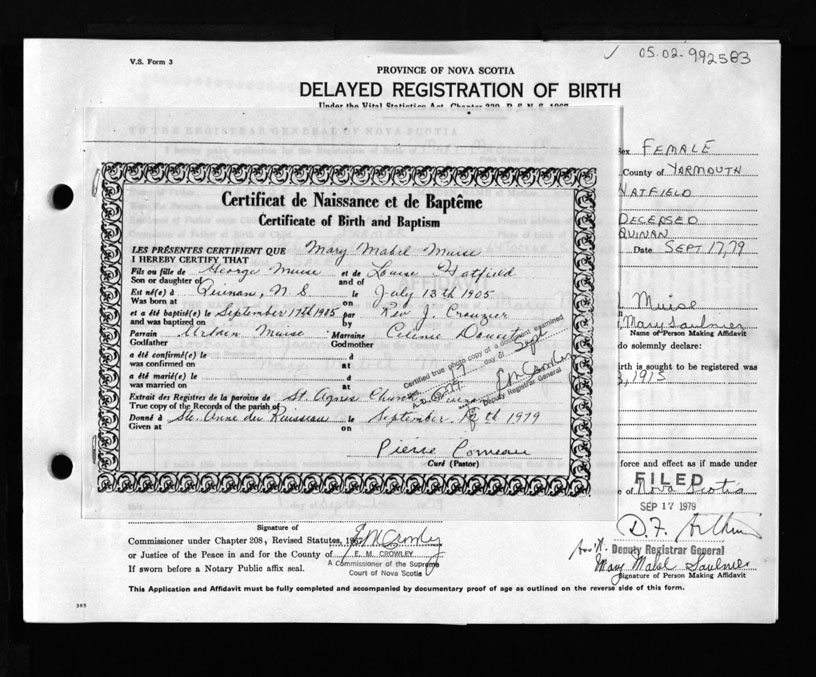 V.S. Form 3
✓ 05.02-992563
PROVINCE OF NOVA SCOTIA
DELAYED REGISTRATION OF BIRTH
Under the Vital Statistics Act, Chapter 330, R.S.N.S. 1967
TO THE REGISTRAR GENERAL OF NOVA SCOTIA
Sex FEMALE
County of YARMOUTH
HATFIELD
DECEASED
QUINAN
Date SEPT 17, 79
Muise
Mary Saulnier
Name of Person Making Affidavit
do solemnly declare:
birth is sought to be registered was
1913
force and effect as if made under
of Nova Scotia
FILED
SEP 17 1979
Deputy Registrar General
Mary Mabel Saulnier
Signature of Person Making Affidavit
Certificat de Naissance et de Baptême
Certificate of Birth and Baptism
LES PRÉSENTES CERTIFIENT QUE Mary Mabel Muise
I HEREBY CERTIFY THAT
Fils ou fille de George Muise et de Louise Hatfield
Son or daughter of and of
Est né(e) à Quinan, N.S. le July 13th 1905
Was born at on
et a été baptisé(e) le September 17th 1905 par Rev J. Crouzier
and was baptized on by
Parrain Urbain Muise Marraine Celenie Doucette
Godfather Godmother
a été confirmé(e) le à
was confirmed on at
a été marié(e) le à
was married on at
Certified true photo copy of a document examined
17 day of Sept
A.D. 1979
EM Crowley
Deputy Registrar General
Extrait des Registres de la paroisse de St. Agnes Church, Quinan
True copy of the Records of the parish of
Donné à Ste. Anne du Ruisseau le September th 1979
Given at on
Pierre Comeau
Curé (Pastor)
Signature of
Commissioner under Chapter 208, Revised Statutes, 1967 EM Crowley
or Justice of the Peace in and for the County of E. M. CROWLEY
If sworn before a Notary Public affix seal. A Commissioner of the Supreme
Court of Nova Scotia
This Application and Affidavit must be fully completed and accompanied by documentary proof of age as outlined on the reverse side of this form.